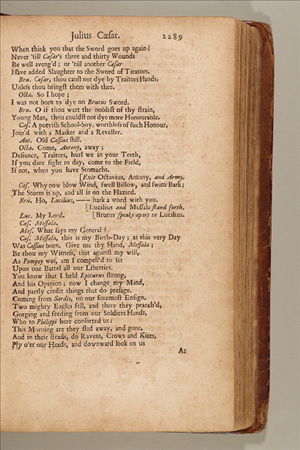 Julius Cæsar. 2289
When think you that the Sword goes up again?
Never 'till Cæsar's three and thirty Wounds
Be well aveng'd; or 'till another Cæsar
Have added Slaughter to the Sword of Traitors.
Bru. Cæsar, thou canst not dye by Traitors Hands,
Unless thou bringst them with thee.
Octa. So I hope;
I was not born to dye on Brutus Sword.
Bru. O if thou wert the noblest of thy strain,
Young Man, thou couldst not dye more Honourable.
Cas. A peevish School-boy, worthless of such Honour,
Join'd with a Masker and a Reveller.
Ant. Old Cassius still.
Octa. Come, Antony, away;
Defiance, Traitors, hurl we in your Teeth,
If you dare fight to day, come to the Field,
If not, when you have Stomachs.
[Exit Octavius, Antony, and Army.
Cas. Why now blow Wind, swell Billow, and swim Bark;
The Storm is up, and all is on the Hazard.
Bru. Ho, Lucilius, —— hark a word with you.
[Lucilius and Messala stand forth.
Luc. My Lord. [Brutus speaks apart to Lucilius.
Cas. Messala.
Mes. What says my General?
Cas. Messala, this is my Birth-Day; as this very Day
Was Cassius born. Give me thy Hand, Messala;
Be thou my Witness, that against my will,
As Pompey was, am I compell'd to set
Upon one Battel all our Liberties.
You know that I held Epicurus strong,
And his Opinion; now I change my Mind,
And partly credit things that do presage.
Coming from Sardis, on our foremost Ensign,
Two mighty Eagles fell, and there they pearch'd,
Gorging and feeding from our Soldiers Hands,
Who to Philippi here consorted us:
This Morning are they fled away, and gone,
And in their steads, do Ravens, Crows and Kites,
Fly o'er our Heads, and downward look on us
As